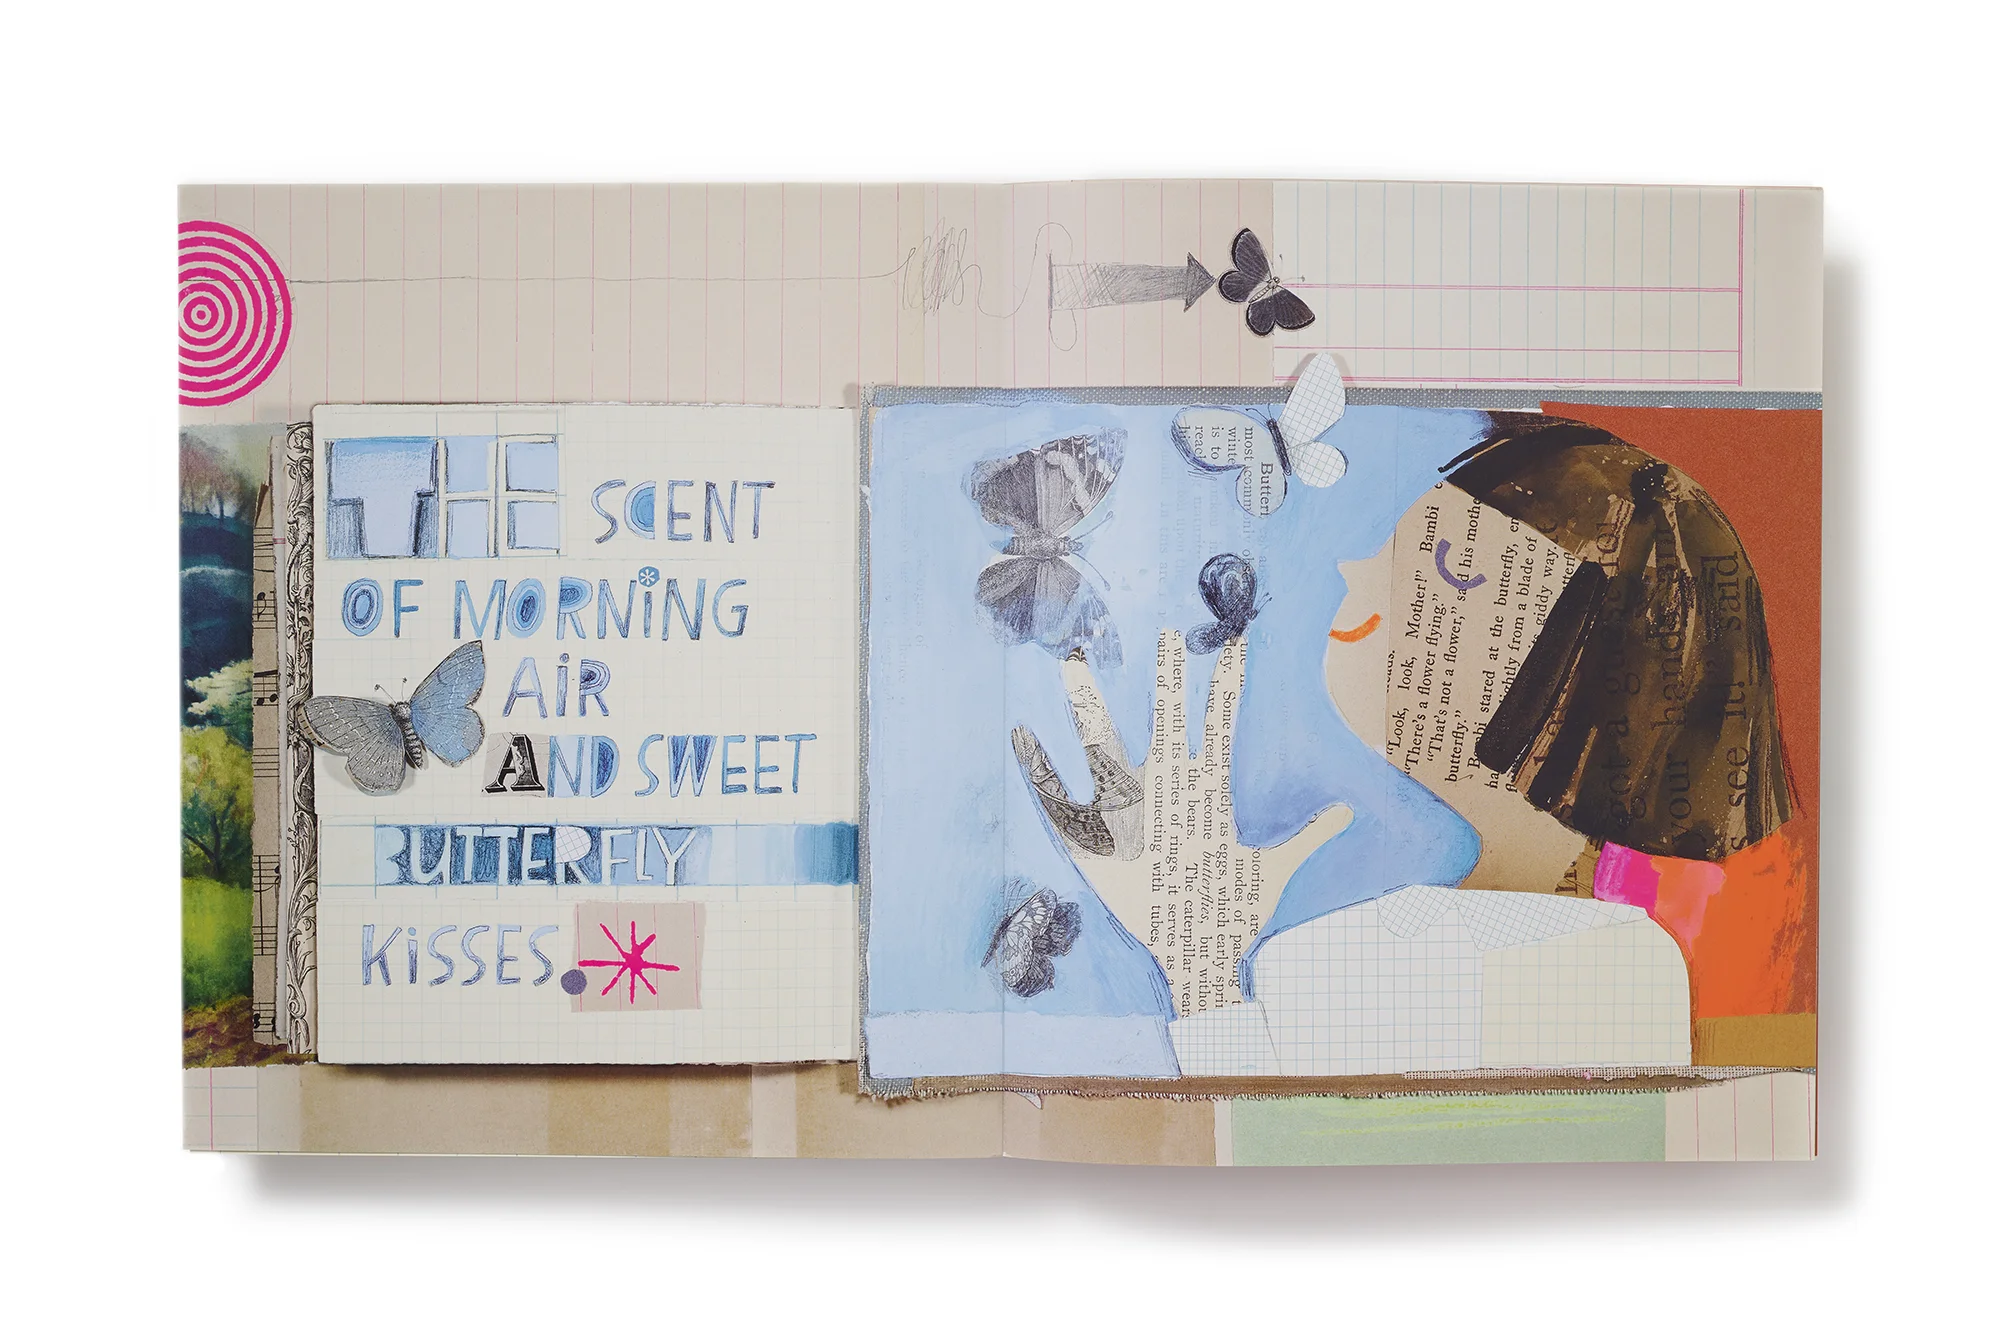 THE SCENT
OF MORNING
AIR
AND SWEET
BUTTERFLY
KISSES.
Butterf
most
winte
is to
reach
modes of passing
Some exist solely as eggs, which early spri
have already become butterflies, but withou
the bears. The caterpillar wears
where, with its series of rings, it serves as a
pairs of openings connecting with tubes,
“Look, look, Mother!” Bambi
“There's a flower flying.”
“That's not a flower,” said his mothe
butterfly.”
stared at the butterfly,
lightly from a blade of
giddy way.
got a
your hands
see it!” said